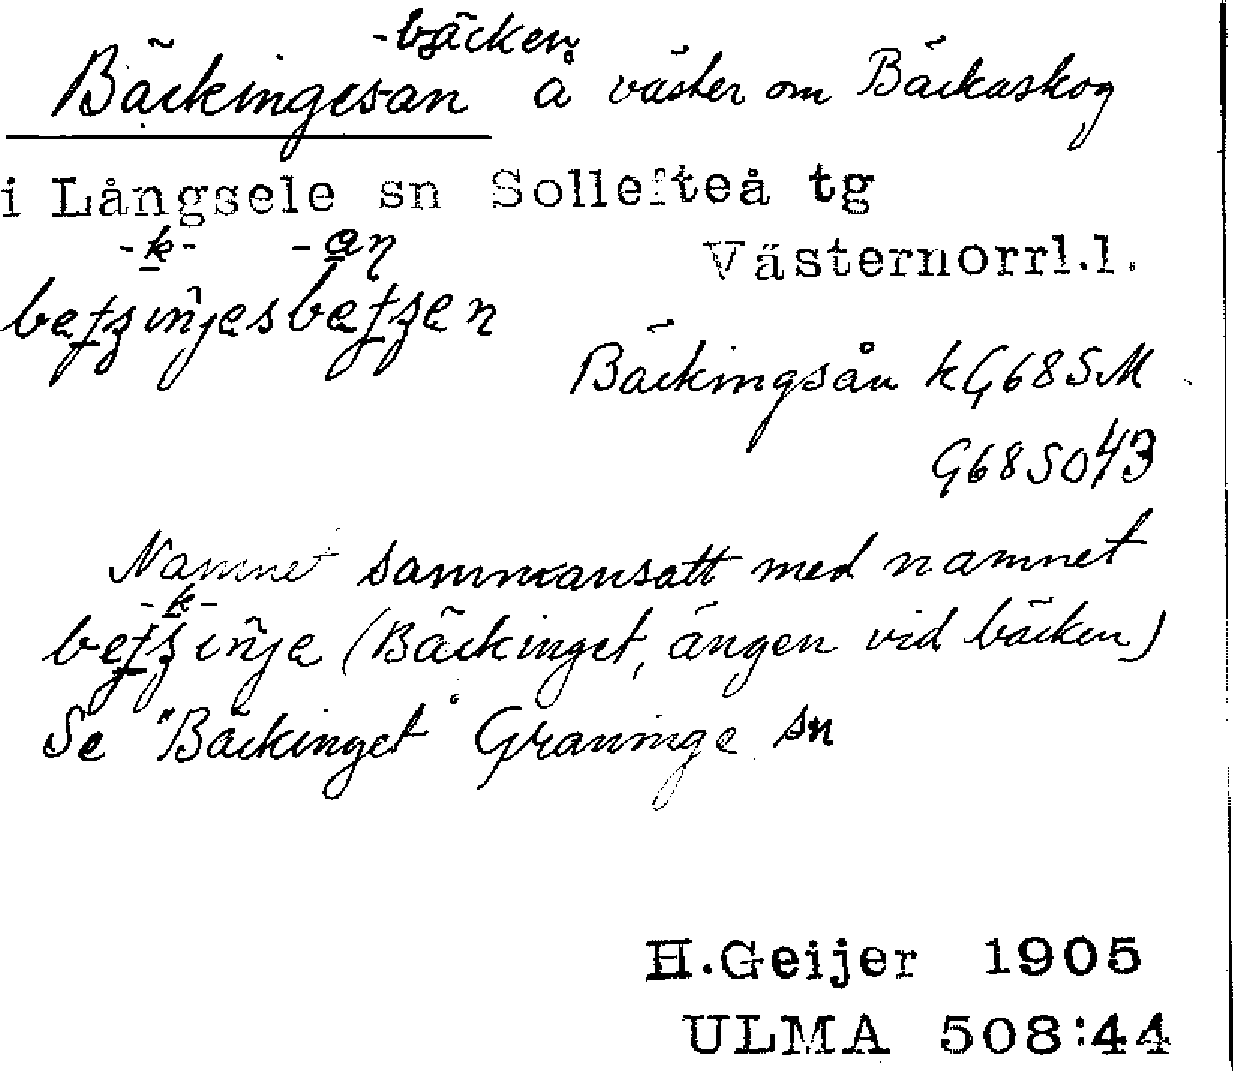 -bäcken
Bäckingesån å väster om Bäckaskog
i Långsele sn Sollefteå tg
Västernorrl.l.
Bäckingsån kG685M
G685043
Namnet sammansatt med namnet
(Bäckinget, ängen vid bäcken)
Se "Bäckinget" Graninge sn
H.Geijer 1905
ULMA 508:44